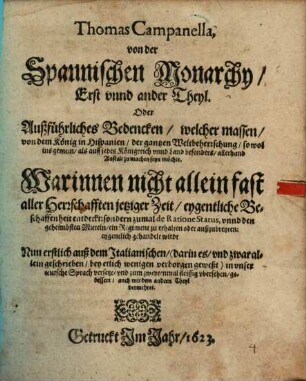 Thomas Campanella,
von der
Spannischen Monarchy/
Erst vnnd ander Theyl.
Oder
Außführliches Bedencken/ welcher massen/
von dem König in Hispanien/ der gantzen Weltbeherrschung/ so wol
ins gemein/ als auff jedes Königreich vnnd Land besonders/ allerhand
Anstalt zu machen seyn möchte.
Warinnen nicht allein fast
aller Herrschafften jetziger Zeit/ eygentliche Be-
schaffenheit entdeckt: sondern zumal de Ratione Status, vnnd den
geheimbsten Mitteln/ ein Regiment zu erhalten oder außzubreyten:
eygentlich gehandelt wirdt
Nun erstlich auß dem Italianischen/ darin es/ vnd zwar al-
lein geschrieben/ bey etlich wenigen verborgen gewest) in vnser
teutsche Sprach versetzt/ vnd zum zweytenmal fleissig vbersehen/ ge-
bessert/ auch mit dem andern Theyl
vermehret.
Getruckt Im Jahr/ 1623.